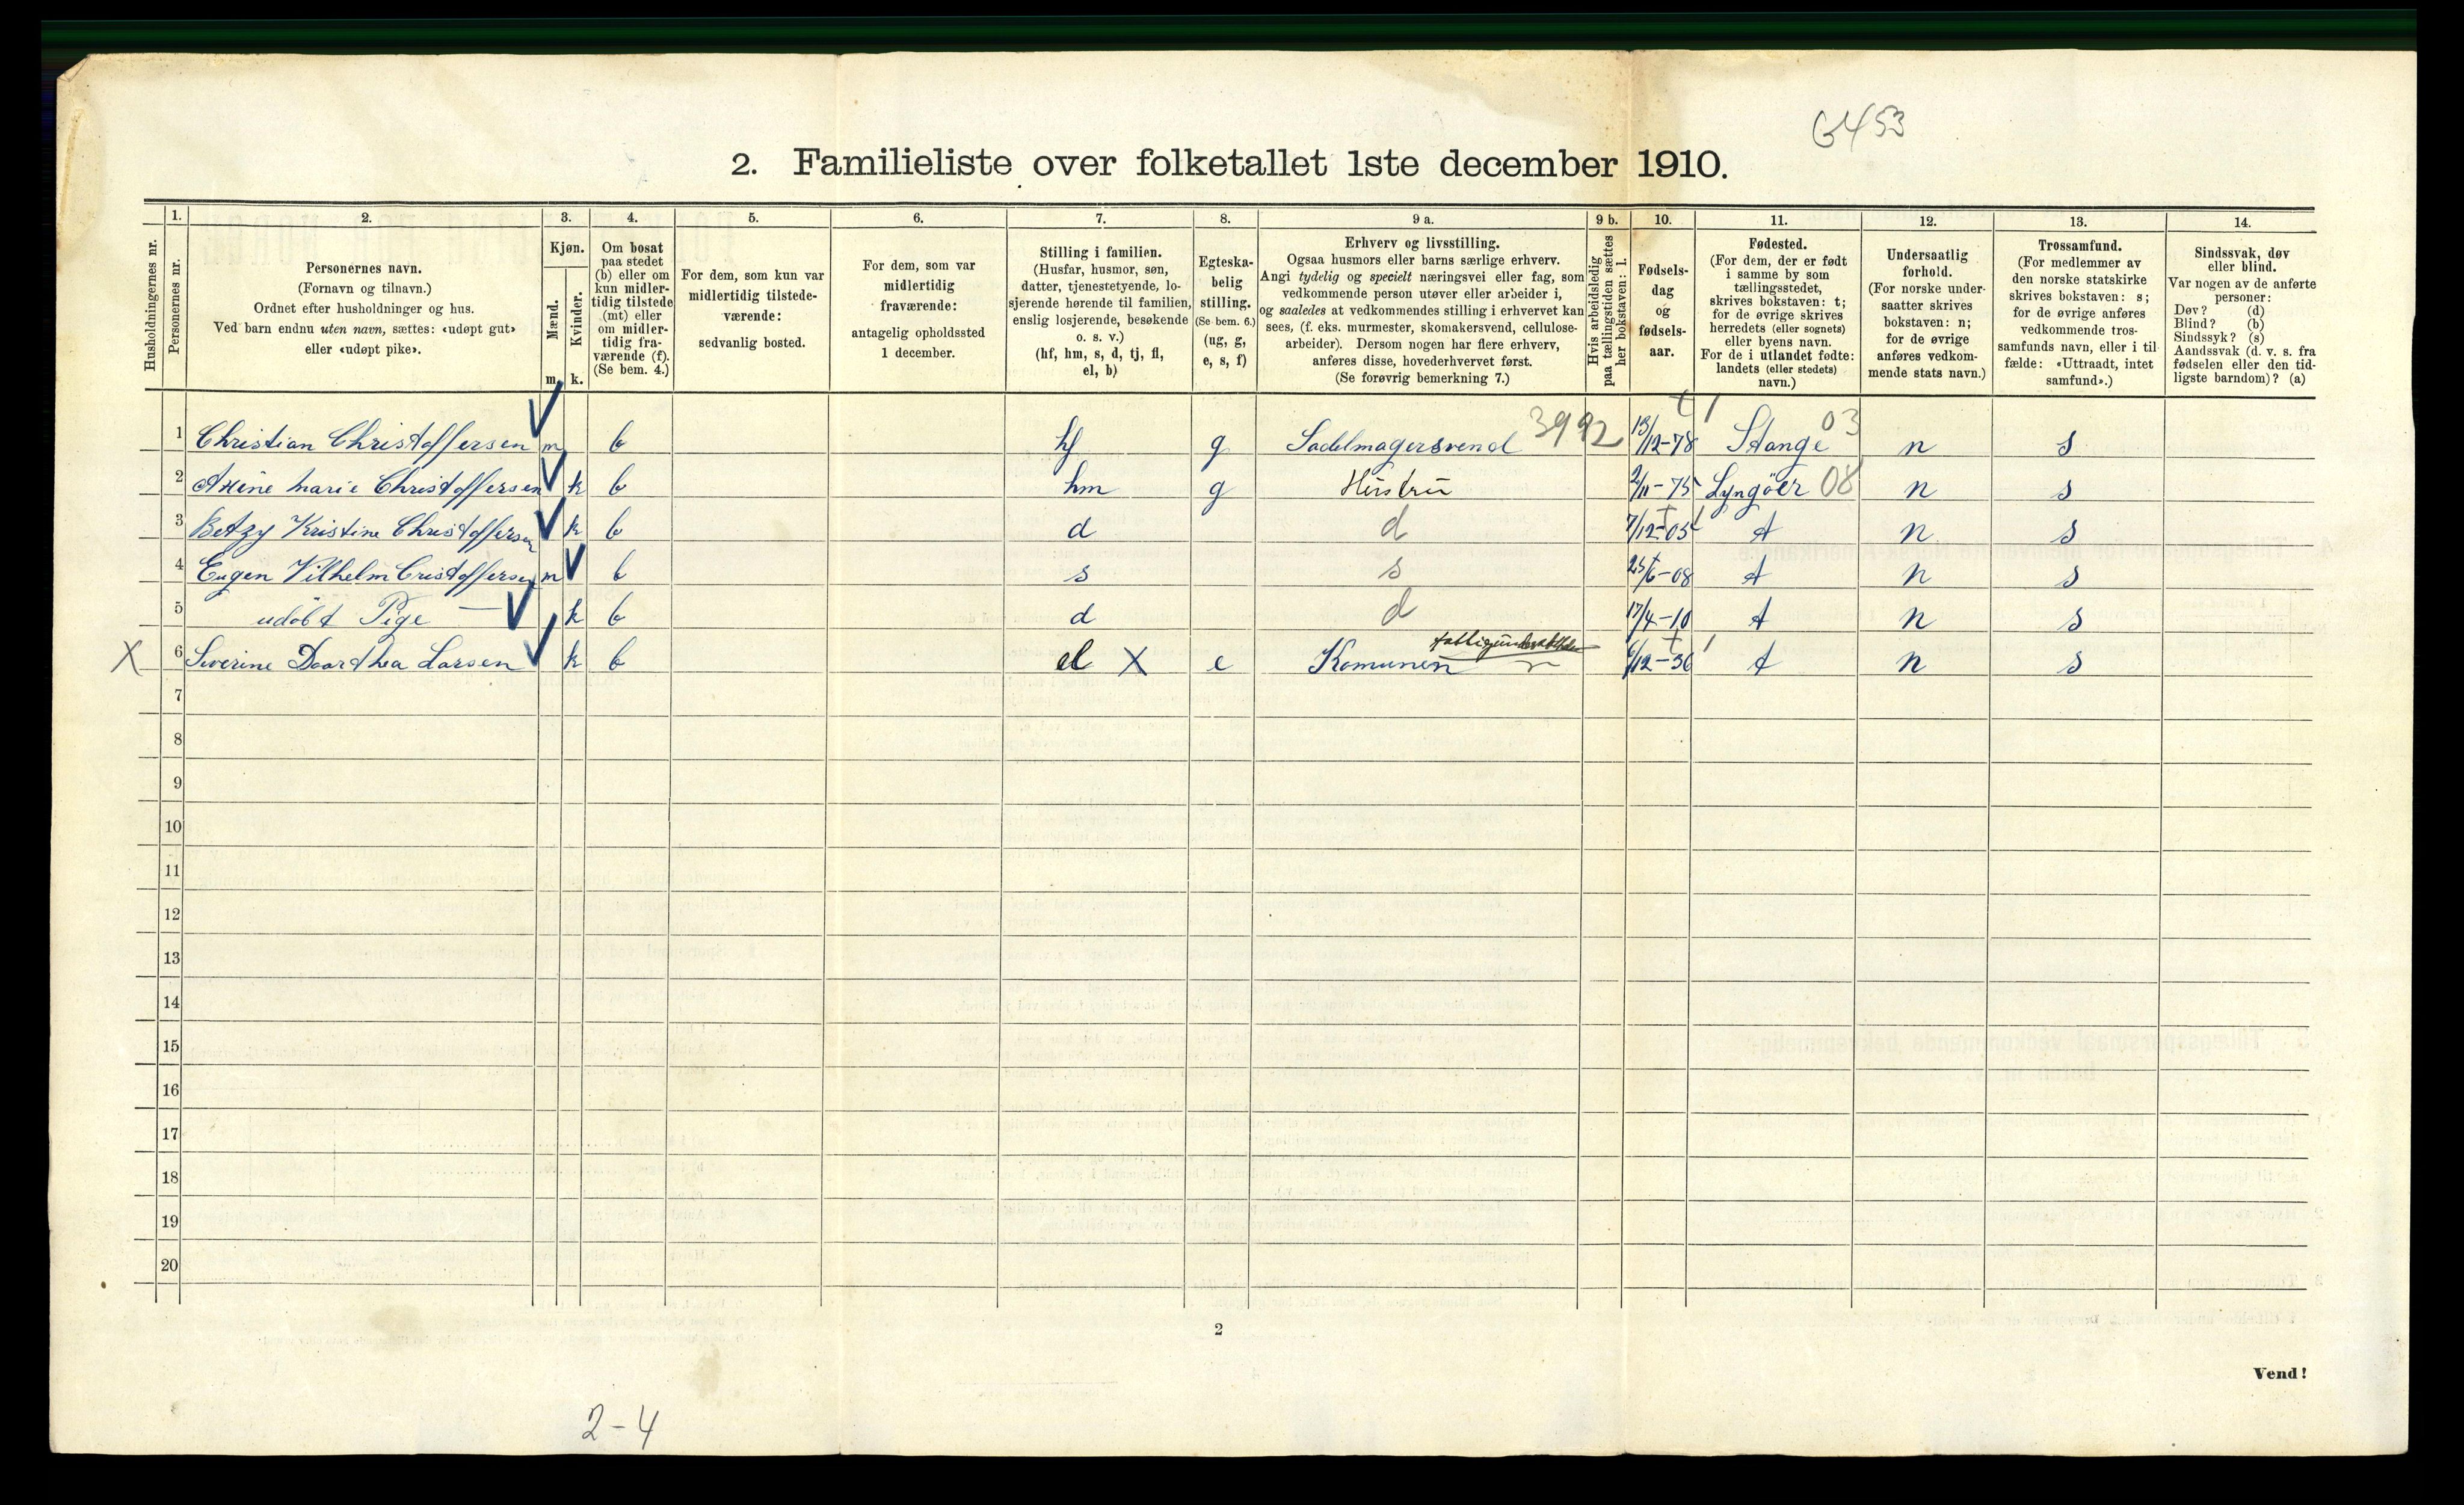 G453
2. Familieliste over folketallet 1ste december 1910.
Husholdningernes nr.
1.
Personernes nr.
2.
Personernes navn.
(Fornavn og tilnavn.)
Ordnet efter husholdninger og hus.
Ved barn endnu uten navn, sættes: «udøpt gut»
eller «udøpt pike».
3.
Kjøn.
Mænd.
Kvinder.
m. k.
4.
Om bosat
paa stedet
(b) eller om
kun midler-
tidig tilstede
(mt) eller
om midler-
tidig fra-
værende (f).
(Se bem. 4.)
5.
For dem, som kun var
midlertidig tilstede-
værende:
sedvanlig bosted.
6.
For dem, som var
midlertidig
fraværende:
antagelig opholdssted
1 december.
7.
Stilling i familien.
(Husfar, husmor, søn,
datter, tjenestetyende, lo-
sjerende hørende til familien,
enslig losjerende, besøkende
o. s. v.)
(hf, hm, s, d, tj, fl,
el, b)
8.
Egteska-
belig
stilling.
(Se bem. 6.)
(ug, g,
e, s, f)
9 a.
Erhverv og livsstilling.
Ogsaa husmors eller barns særlige erhverv.
Angi tydelig og specielt næringsvei eller fag, som
vedkommende person utøver eller arbeider i,
og saaledes at vedkommendes stilling i erhvervet kan
sees, (f. eks. murmester, skomakersvend, cellulose-
arbeider). Dersom nogen har flere erhverv,
anføres disse, hovederhvervet først.
(Se forøvrig bemerkning 7.)
9 b.
Hvis arbeidsledig
paa tællingstiden sættes
her bokstaven: l.
10.
Fødsels-
dag
og
fødsels-
aar.
11.
Fødested.
(For dem, der er født
i samme by som
tællingsstedet,
skrives bokstaven: t;
for de øvrige skrives
herredets (eller sognets)
eller byens navn.
For de i utlandet fødte:
landets (eller stedets)
navn.)
12.
Undersaatlig
forhold.
(For norske under-
saatter skrives
bokstaven: n;
for de øvrige
anføres vedkom-
mende stats navn.)
13.
Trossamfund.
(For medlemmer av
den norske statskirke
skrives bokstaven: s;
for de øvrige anføres
vedkommende tros-
samfunds navn, eller i til-
fælde: «Uttraadt, intet
samfund».)
14.
Sindssvak, døv
eller blind.
Var nogen av de anførte
personer:
Døv? (d)
Blind? (b)
Sindssyk? (s)
Aandssvak (d. v. s. fra
fødselen eller den tid-
ligste barndom)? (a)
1 Christian Christoffersen m b hf g Sadelmagersvend 3992 13/12-78 Stange 03 n s
2 Axine Marie Christoffersen k b hm g Hustru 2/11-75 Lyngöer 08 n s
3 Betzy Kristine Christoffersen k b d d 7/12-05 t n s
4 Eugen Vilhelm Cristoffersen m b s s 25/6-08 t n s
5 udöbt Pige — k b d d 17/4-10 t n s
X 6 Severine Doorthea Larsen k b el X e Komunen 6/12-36 t n s
7
8
9
10
11
12
13
14
15
16
17
18
19
20
2
Vend!
2-4